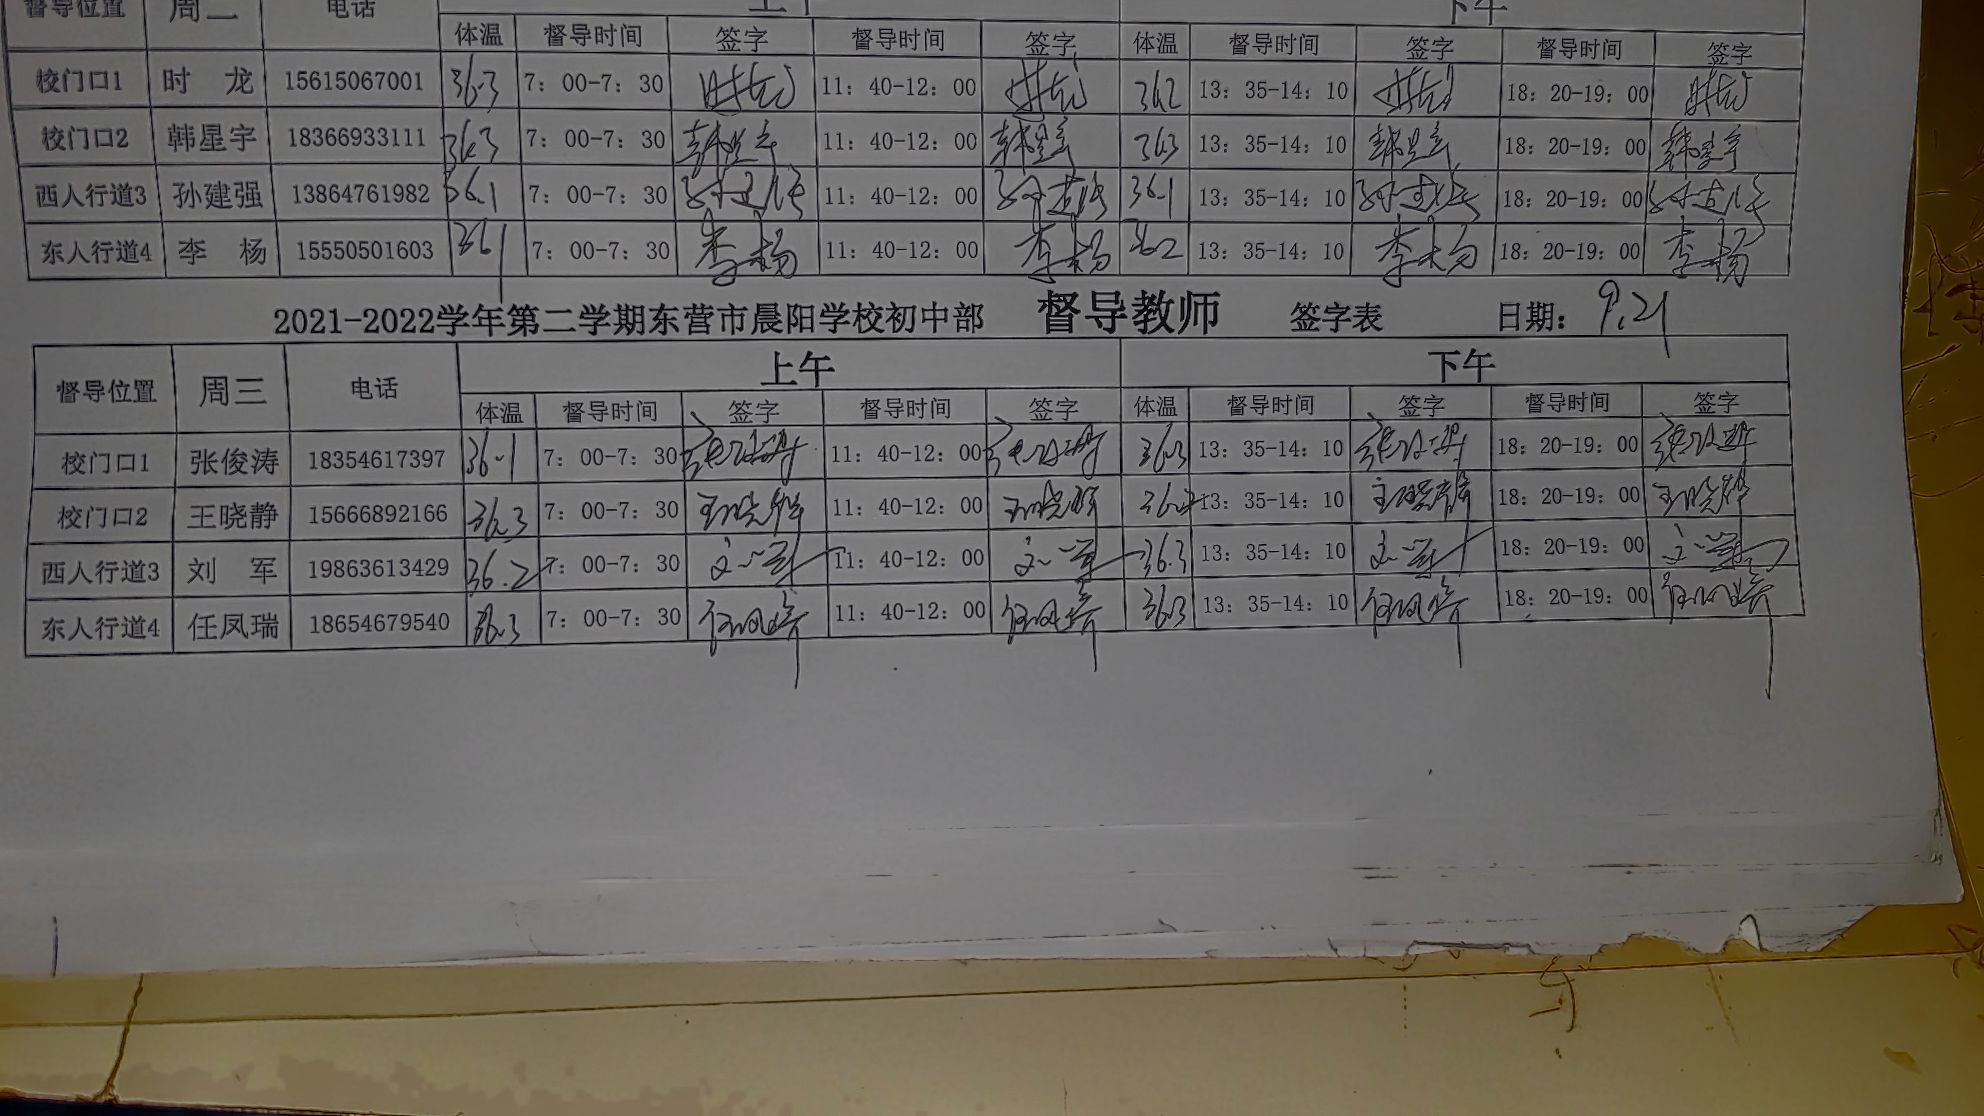 督导位置 周二 电话 上午 下午
体温 督导时间 签字 督导时间 签字 体温 督导时间 签字 督导时间 签字
校门口1 时 龙 15615067001 36.3 7：00-7：30 时龙 11：40-12：00 时龙 36.2 13：35-14：10 时龙 18：20-19：00 时龙
校门口2 韩星宇 18366933111 36.3 7：00-7：30 韩星宇 11：40-12：00 韩星宇 36.3 13：35-14：10 韩星宇 18：20-19：00 韩星宇
西人行道3 孙建强 13864761982 36.1 7：00-7：30 孙建强 11：40-12：00 孙建强 36.1 13：35-14：10 孙建强 18：20-19：00 孙建强
东人行道4 李 杨 15550501603 36.1 7：00-7：30 李杨 11：40-12：00 李杨 36.2 13：35-14：10 李杨 18：20-19：00 李杨
2021-2022学年第二学期东营市晨阳学校初中部 督导教师 签字表 日期：9.21
督导位置 周三 电话 上午 下午
体温 督导时间 签字 督导时间 签字 体温 督导时间 签字 督导时间 签字
校门口1 张俊涛 18354617397 36.1 7：00-7：30 张俊涛 11：40-12：00 张俊涛 36.3 13：35-14：10 张俊涛 18：20-19：00 张俊涛
校门口2 王晓静 15666892166 36.3 7：00-7：30 王晓静 11：40-12：00 王晓静 36.2 13：35-14：10 王晓静 18：20-19：00 王晓静
西人行道3 刘 军 19863613429 36.2 7：00-7：30 刘军 11：40-12：00 刘军 36.3 13：35-14：10 刘军 18：20-19：00 刘军
东人行道4 任凤瑞 18654679540 36.3 7：00-7：30 任凤瑞 11：40-12：00 任凤瑞 36.3 13：35-14：10 任凤瑞 18：20-19：00 任凤瑞